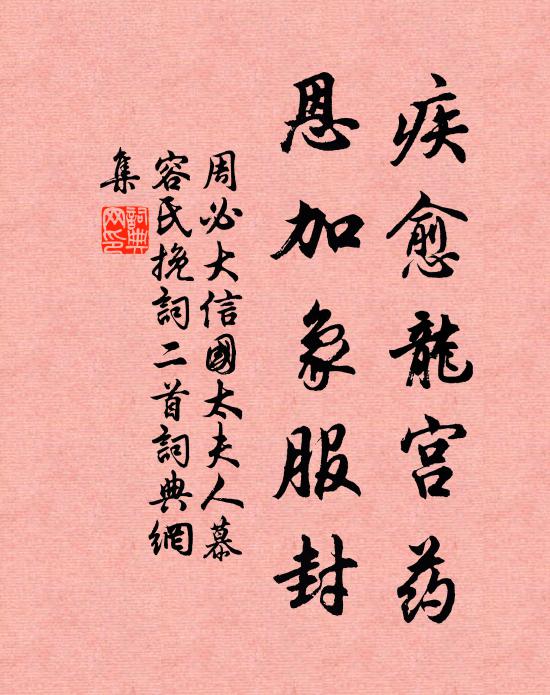 疾愈龍宫药
恩加象服封
周必大信國太夫人慕
容氏挽詞二首詞典網
集
詞典
网印